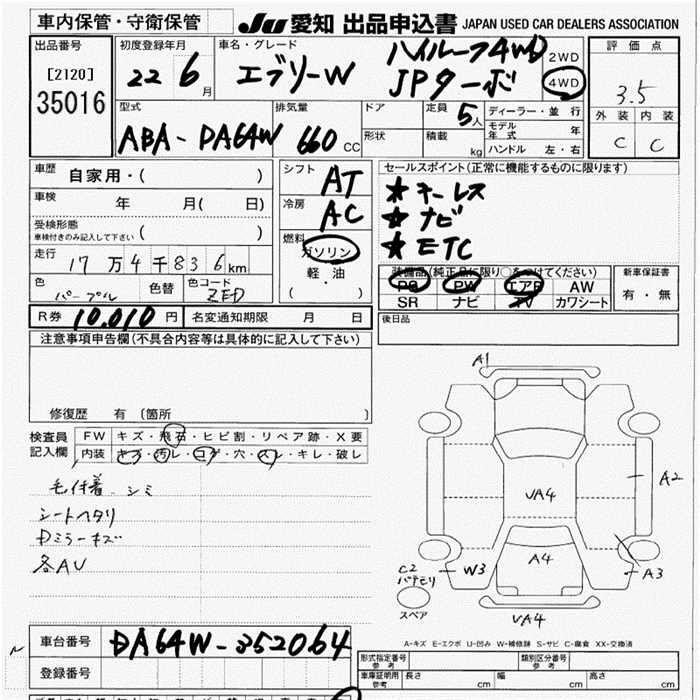 車内保管・守衛保管
JU 愛知 出品申込書 JAPAN USED CAR DEALERS ASSOCIATION
出品番号
[2120]
35016
初度登録年月
22 6月
車名・グレード
エブリーW
ハイルーフ4WD
JPターボ
2WD
4WD
評価点
3.5
外装 内装
C C
型式
ABA-DA64W
排気量
660 CC
ドア
形状
定員
5人
積載
kg
ディーラー・並行
モデル年式 年
ハンドル 左・右
車歴
自家用・( )
車検
年 月( 日)
受検形態
車検付きのみ記入して下さい ( )
走行
17万4千836km
色
パープル
色替
色コード
ZED
シフト
AT
冷房
AC
燃料
ガソリン
軽・油
( ・ )
セールスポイント(正常に機能するものに限ります)
★キーレス
★ナビ
★ETC
装備品(純正品に限り○をつけてください)
PS PW エアB AW
SR ナビ TV カワシート
新車保証書
有・無
R券 10,010円
名変通知期限 月 日
後日品
注意事項申告欄(不具合内容等は具体的に記入して下さい)
修復歴 有 〔箇所 〕
検査員記入欄
FW キズ・飛石・ヒビ割・リペア跡・X要
内装 キズ・汚レ・コゲ・穴・スレ・キレ・破レ
毛付着 シミ
シートヘタリ
ミラーキズ
各AU
A1
A2
UA4
A4
W3
A3
C2
バテモリ
スペア
UA4
A-キズ E-エクボ U-凹み W-補修跡 S-サビ C-腐食 XX-交換済
車台番号
DA64W-352064
登録番号
形式指定番号
参考
類別区分番号
参考
車庫証明用
参考
長さ cm 幅 cm 高さ cm